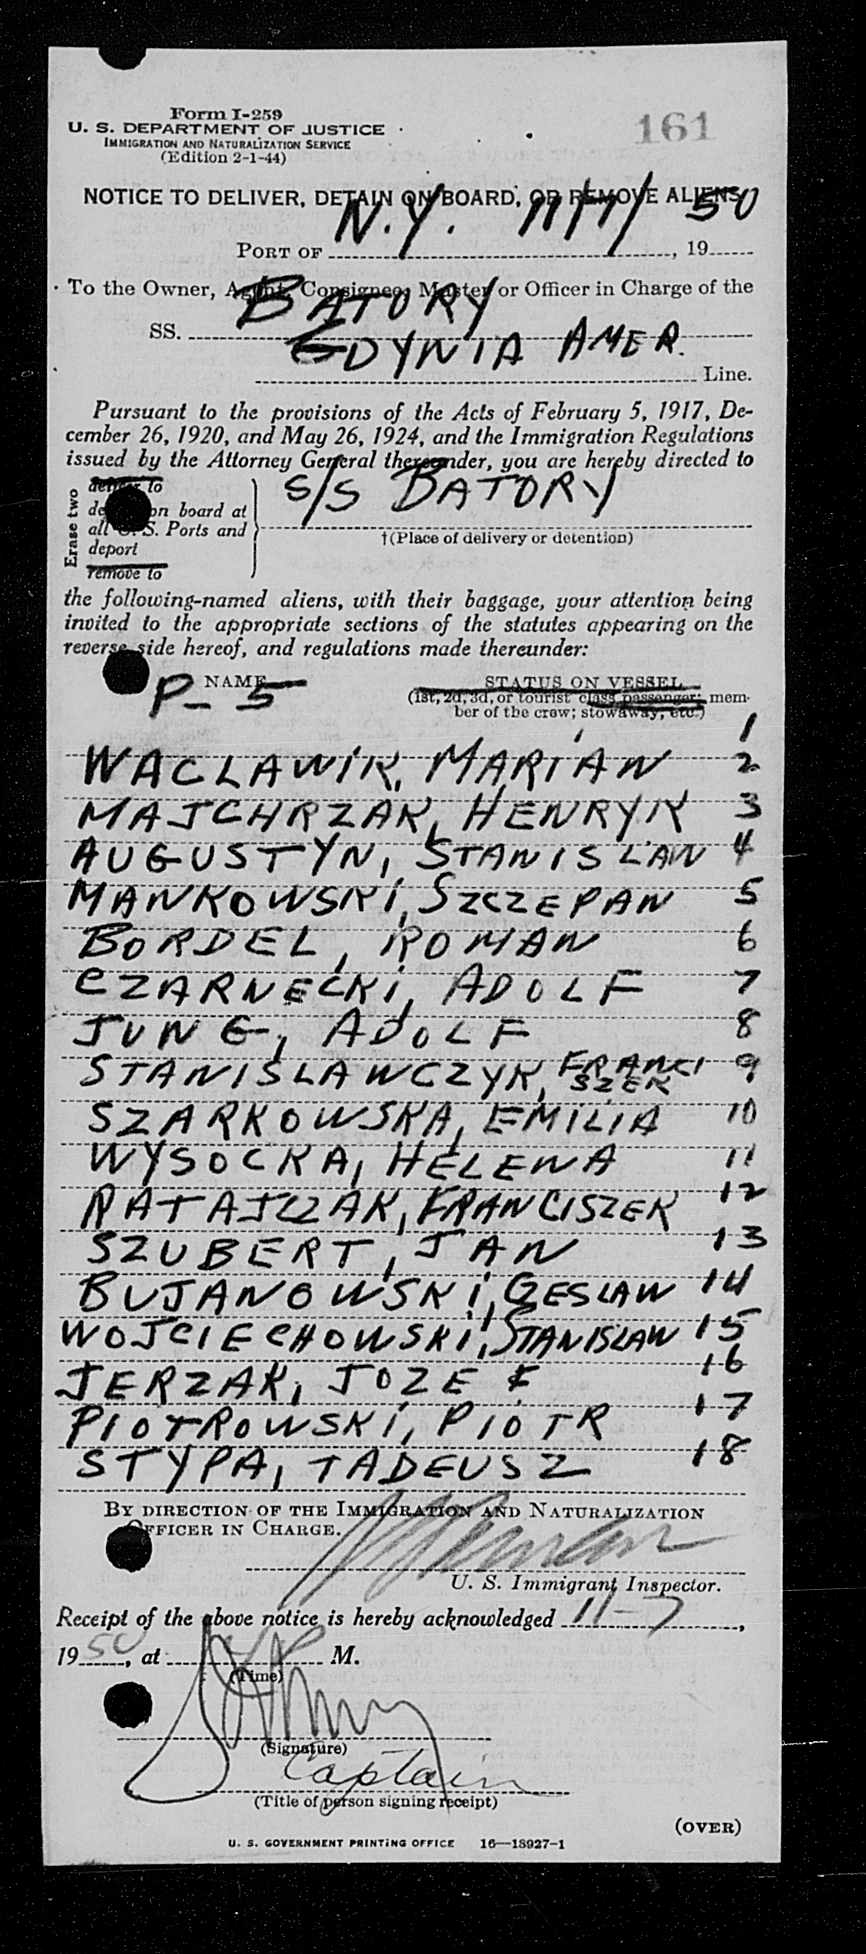 Form I-259
161
U. S. DEPARTMENT OF JUSTICE
IMMIGRATION AND NATURALIZATION SERVICE
(Edition 2-1-44)
NOTICE TO DELIVER, DETAIN ON BOARD, OR REMOVE ALIENS
PORT OF N.Y. 11/7/, 19 50
To the Owner, Agent, Consignee, Master or Officer in Charge of the
SS. BATORY
GDYNIA AMER. Line.
Pursuant to the provisions of the Acts of February 5, 1917, De-
cember 26, 1920, and May 26, 1924, and the Immigration Regulations
issued by the Attorney General thereunder, you are hereby directed to
Erase two
deliver to
detain on board at
all U. S. Ports and
deport
remove to
S/S BATORY
†(Place of delivery or detention)
the following-named aliens, with their baggage, your attention being
invited to the appropriate sections of the statutes appearing on the
reverse side hereof, and regulations made thereunder:
NAME STATUS ON VESSEL
P-5 (1st, 2d, 3d, or tourist class passenger; mem-
ber of the crew; stowaway, etc.)
1
WACLAWIK, MARIAN 2
MAJCHRZAK, HENRYK 3
AUGUSTYN, STANISLAW 4
MANKOWSKI, SZCZEPAN 5
BORDEL, ROMAN 6
CZARNECKI, ADOLF 7
JUNG, ADOLF 8
STANISLAWCZYK, FRANCISZEK 9
SZARKOWSKA, EMILIA 10
WYSOCKA, HELENA 11
RATAJCZAK, FRANCISZEK 12
SZUBERT, JAN 13
BUJANOWSKI, CZESLAW 14
WOJCIECHOWSKI, STANISLAW 15
JERZAK, JOZEF 16
PIOTROWSKI, PIOTR 17
STYPA, TADEUSZ 18
BY DIRECTION OF THE IMMIGRATION AND NATURALIZATION
OFFICER IN CHARGE.
U. S. Immigrant Inspector.
Receipt of the above notice is hereby acknowledged 11-7,
19 50, at M.
(Time)
(Signature)
Captain
(Title of person signing receipt)
(OVER)
U. S. GOVERNMENT PRINTING OFFICE 16—18927-1